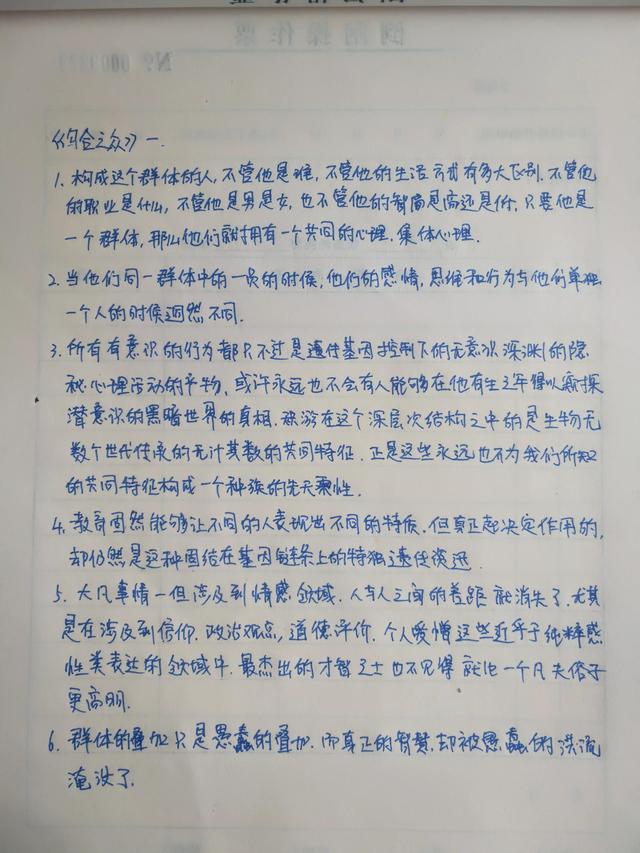 倒闸操作票
No
《乌合之众》一.
1. 构成这个群体的人, 不管他是谁, 不管他的生活方式有多大区别. 不管他
的职业是什么, 不管他是男是女, 也不管他的智商是高还是低, 只要他是
一个群体, 那么他们就拥有一个共同的心理. 集体心理.
2. 当他们同一群体中的一员的时候, 他们的感情, 思维和行为与他们单独
一个人的时候迥然不同.
3. 所有有意识的行为都只不过是遗传基因控制下的无意识深渊的隐
秘心理活动的产物, 或许永远也不会有人能够在他有生之年得以窥探
潜意识的黑暗世界的真相. 秘游在这个深层次结构之中的是生物无
数个世代传承的无计其数的共同特征. 正是这些永远也不为我们所知
的共同特征构成一个种族的先天禀性.
4. 教育固然能够让不同的人表现出不同的特质. 但真正起决定作用的,
却仍然是这种固结在基因链条上的特独遗传资迅.
5. 大凡事情一但涉及到情感领域. 人与人之间的差距就消失了. 尤其
是在涉及到信仰. 政治观点, 道德评价. 个人爱憎这些近乎于纯粹感
性类表达的领域中. 最杰出的才智之士也不见得就比一个凡夫俗子
更高明.
6. 群体的叠加只是愚蠢的叠加. 而真正的智慧却被愚蠢的洪流
淹没了.